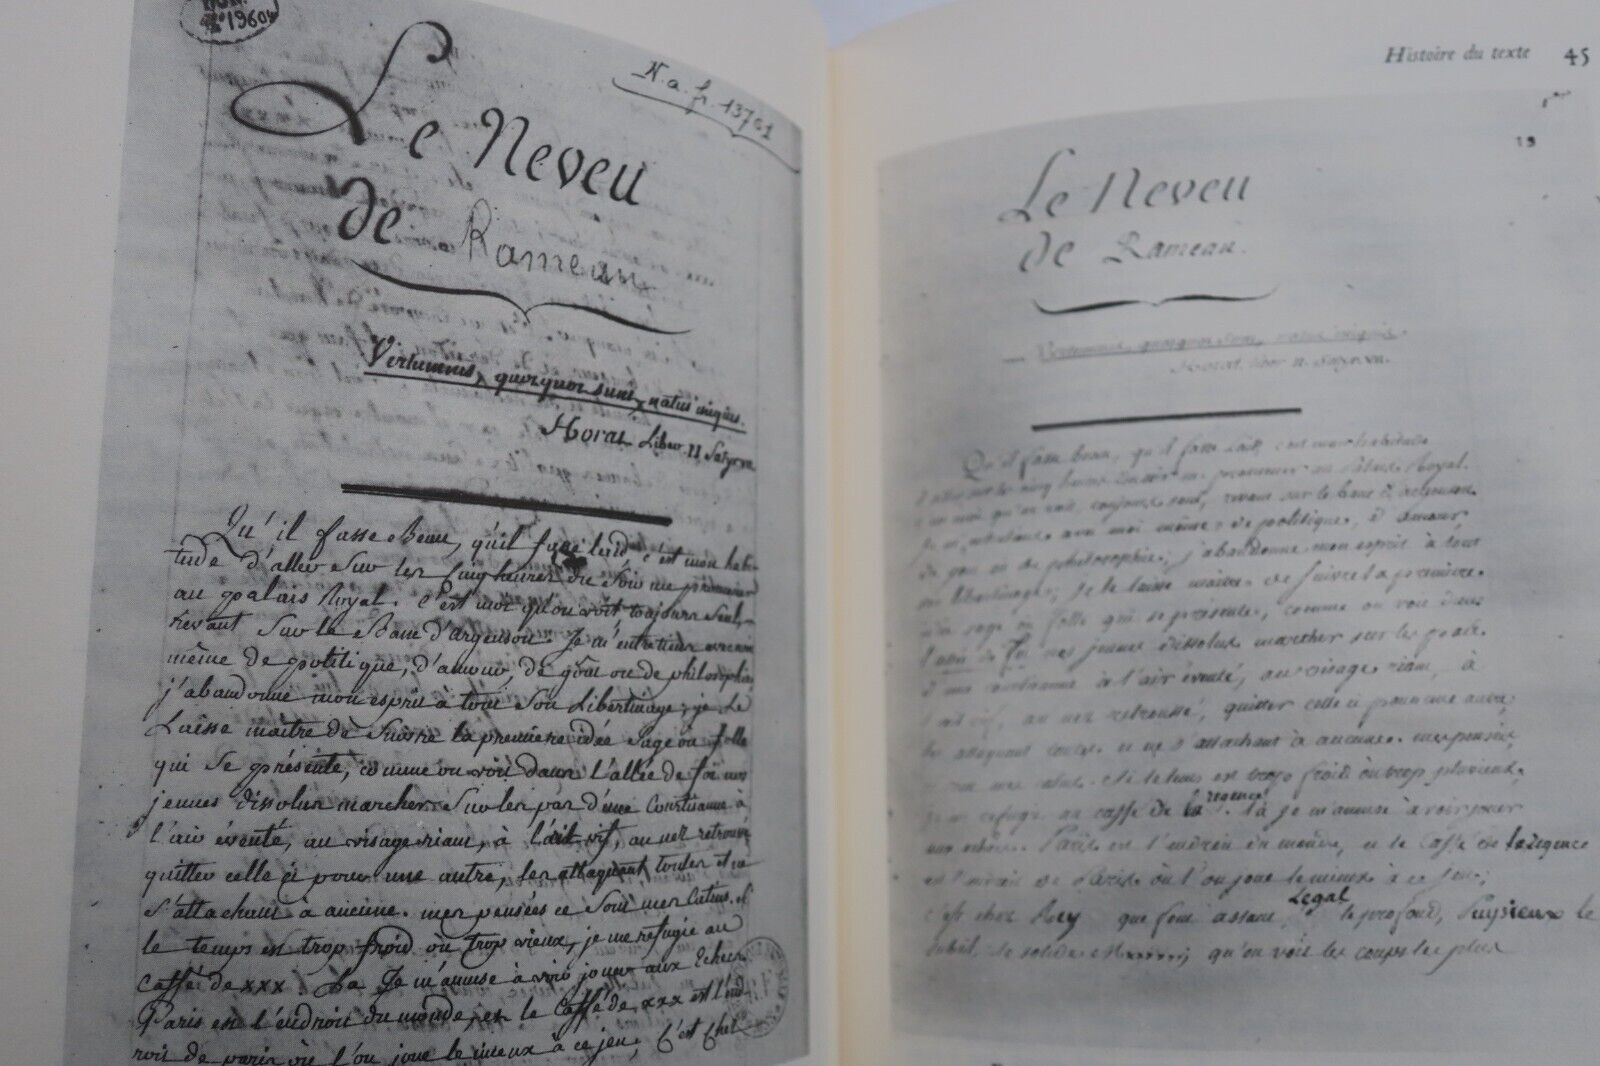 19604
N.a.fr. 13761
Le Neveu
de Rameau
Virtumnis, quotquot sunt, natus iniquis.
Horat. Liber. II Satyr. VII
Qu'il fasse Beau, qu'il fasse laid c'est mon habi-
tude d'aller Sur les Cinq heures du Soir me promener
au palais Royal. C'est moi qu'on voit toujours Seul,
Revant Sur le Banc d'argenson. Je m'entretiens avec moi
même de politique, d'amour, de goût ou de philosophie,
j'abandonne mon esprit à tout Son Libertinage; je Le
Laisse maître de Suivre la première idée Sage ou folle
qui Se présente, comme on voit dans l'allée de foi nos
jeunes dissolus marcher Sur les pas d'une Courtisanne à
l'air éventé, au visage riant, à l'œil vif, au nez retroussé
quitter celle ci pour une autre, les attaquant toutes et ne
S'attachant à aucune. mes pensées ce Sont mes Catins. Si
le temps est trop froid ou trop vieux, je me refugie au
Caffé de xxx. La Je m'amuse à voir jouer aux Echecs
Paris est l'endroit du monde, et le Caffé de xxx est l'end
roit de paris où l'on joue le mieux à ce jeu; C'est Chez
Histoire du texte 45
1er
19
Le Neveu
de Rameau.
Vertumnis, quotquot sunt, natus iniquis.
Horat. liber II. Satyr. VII.
Qu'il fasse beau, qu'il fasse laid, c'est mon habitude
d'aller sur les cinq heures du soir me promener au Palais Royal.
C'est moi qu'on voit, toujours seul, rêvant sur le banc d'Argenson.
Je m'entretiens avec moi même de politique, d'amour
de goût ou de philosophie; j'abandonne mon esprit à tout
son libertinage; Je le laisse maître de suivre la première
idée sage ou folle qui se présente, comme on voit dans
l'allée de foi nos jeunes dissolus marcher sur les pas
d'une courtisanne à l'air éventé, au visage riant, à
l'œil vif, au nez retroussé, quitter celle ci pour une autre,
les attaquant toutes et ne s'attachant à aucune. mes pensées,
ce sont mes catins. Si le tems est trop froid ou trop pluvieux,
je me refugie au caffé de la regence. là je m'amuse à voir jouer
aux echecs. Paris est l'endroit du monde, et le Caffé de la regence
est l'endroit de Paris où l'on joue le mieux à ce jeu;
c'est chez Rey que font assaut Legal le profond, Puysieux le
subtil, le solide, qu'on voit les coups les plus